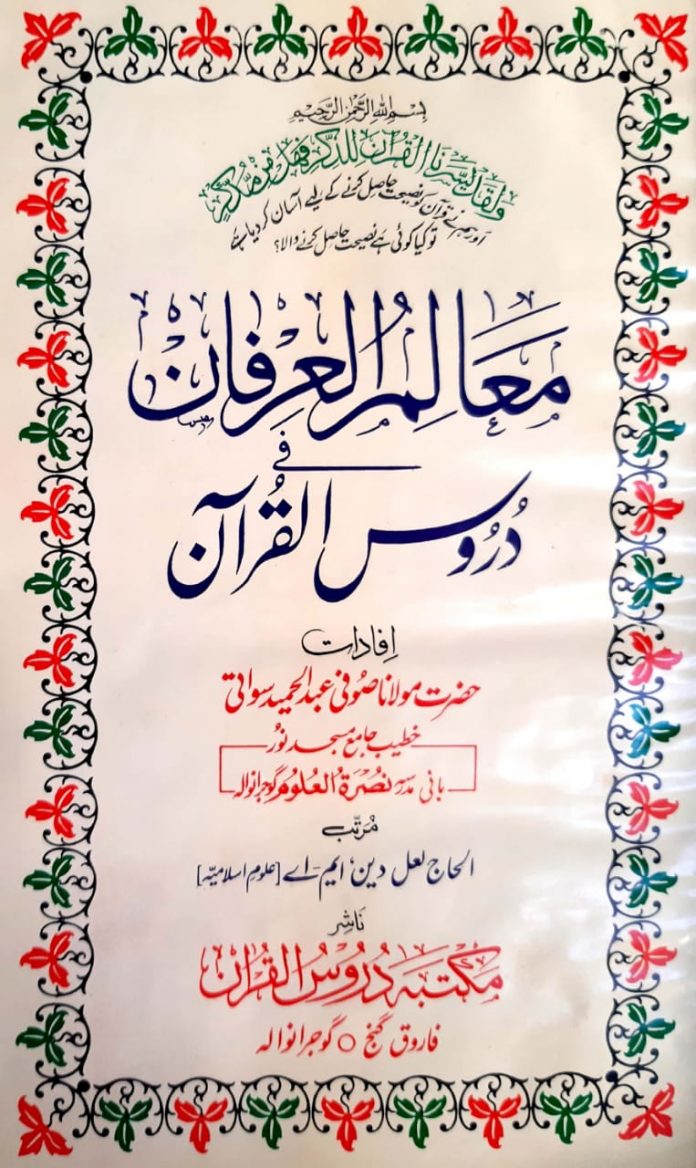 بسم الله الرحمن الرحیم
ولقد یسرنا القرآن للذکر فهل من مدکر
اور ہم نے قرآن کو نصیحت حاصل کرنے کے لیے آسان کر دیا ہے
تو کیا کوئی ہے نصیحت حاصل کرنے والا؟
مَعَالِمُ العِرفَان
فی
دُرُوس القُرآن
اِفادات
حضرت مولانا صوفی عبد الحمید سواتی
خطیب جامع مسجد نور
بانی مدرسہ نصرۃ العلوم گوجرانوالہ
مُرتّب
الحاج لعل دین، ایم۔اے [علوم اسلامیہ]
نَاشِر
مکتبہ دُرُوسُ القُرآن
فاروق گنج ○ گوجرانوالہ